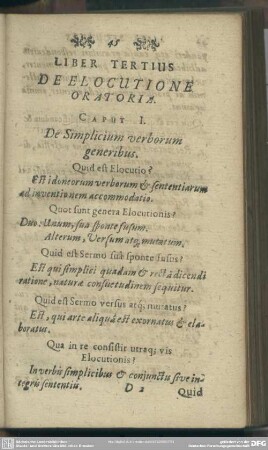 45
LIBER TERTIUS
DE ELOCUTIONE
ORATORIA.
CAPUT I.
De Simplicium verborum
generibus.
Quid est Elocutio?
Est idoneorum verborum & sententiarum
ad inventionem accommodatio.
Quot sunt genera Elocutionis?
Duo: Unum, sua sponte fusum.
Alterum, Versum atq; mutatum.
Quid est Sermo sua sponte fusus?
Est qui simplici quadam & recta dicendi
ratione, naturæ consuetudinem sequitur.
Quid est Sermo versus atq; mutatus?
Est, qui arte aliqua est exornatus & ela-
boratus.
Qua in re consistit utraq; vis
Elocutionis?
In verbis simplicibus & conjunctis sive in-
tegris sententiis.
D 2 Quid